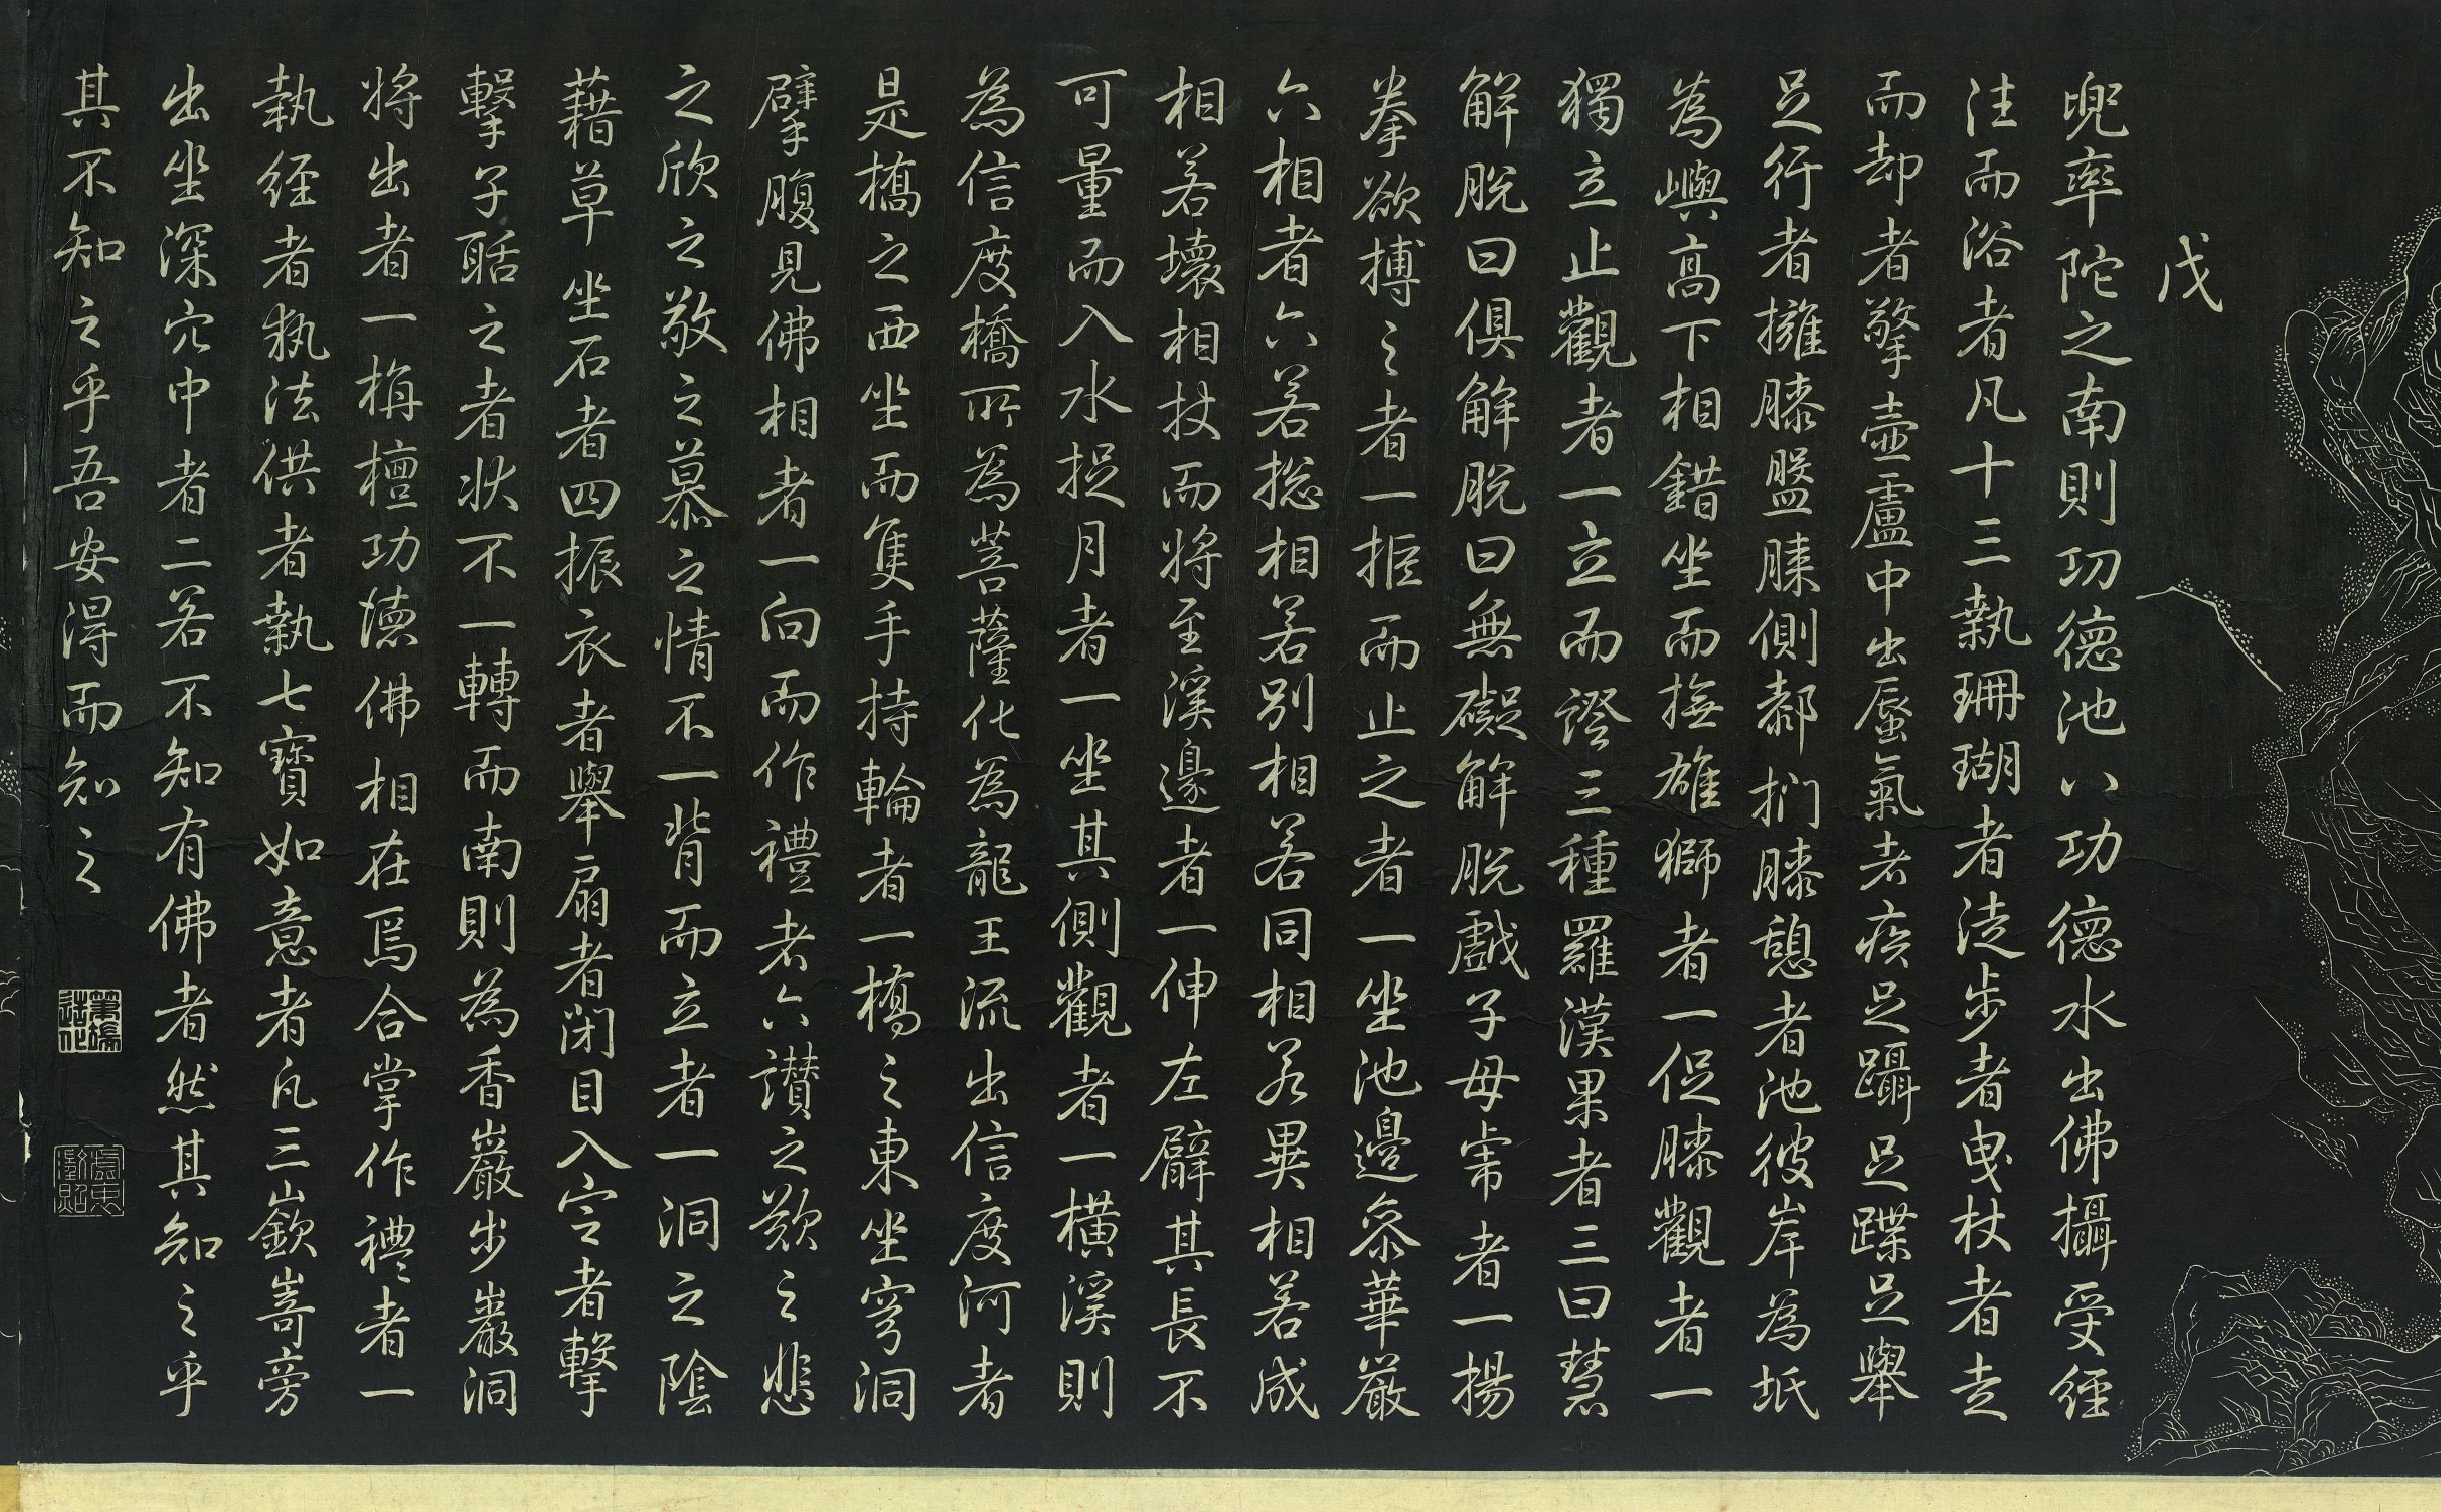 戊
兜率陀之南則功德池八功德水出佛攝受經
注而浴者凡十三執珊瑚者徒步者曳杖者走
而却者擎壺壺盧中出蜃氣者疾足躡足蹀足舉
足行者擁膝盤膝側膝捫膝憩者池彼岸為坻
為嶼高下相錯坐而撫雄獅者一促膝觀者一
獨立止觀者一立而證三種羅漢果者三曰慧
解脫曰俱解脫曰無礙解脫戲子母帋者一揚
拳欲搏之者一拒而止之者一坐池邊參華嚴
六相者六若總相若別相若同相若異相若成
相若壞相扶而將至溪邊者一伸左臂其長不
可量而入水捉月者一坐其側觀者一橫溪則
為信度橋所為菩薩化為龍王流出信度河者
是橋之西坐而隻手持輪者一橋之東坐穹洞
擘腹見佛相者一向而作禮者六讚之歎之悲
之欣之敬之慕之情不一背而立者一洞之陰
藉草坐石者四振衣者舉扇者閉目入定者擊
擊子聒之者狀不一轉而南則為香巖步巖洞
將出者一栴檀功德佛相在焉合掌作禮者一
執經者執法供者執七寶如意者凡三嶔崎旁
出坐深穴中者二若不知有佛者然其知之乎
其不知之乎吾安得而知之
筆端造化